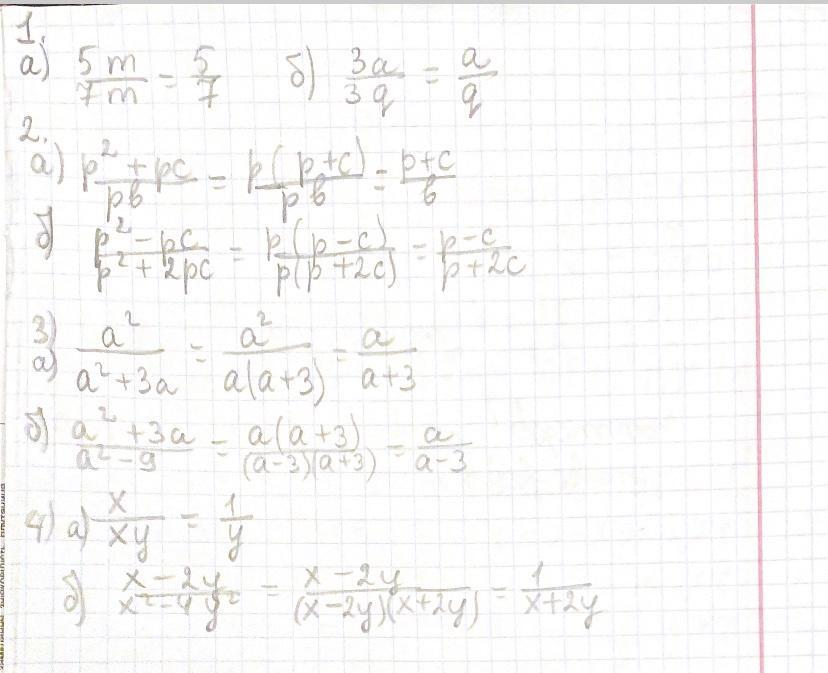 1.
а) 5m/7m = 5/7 б) 3a/3q = a/q
2.
а) p² + pc/pb = p(p+c)/pb = p+c/b
б) p² - pc/p² + 2pc = p(p-c)/p(p+2c) = p-c/p+2c
3)
а) a²/a²+3a = a²/a(a+3) = a/a+3
б) a²+3a/a²-9 = a(a+3)/(a-3)(a+3) = a/a-3
4) а) x/xy = 1/y
б) x-2y/x²-4y² = x-2y/(x-2y)(x+2y) = 1/x+2y